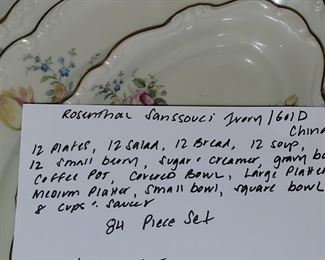 Rosenthal Sanssouci Ivory/Gold
China
12 Plates, 12 Salad, 12 Bread, 12 soup,
12 small berry, sugar & creamer, gravy bo
Coffee Pot, Covered Bowl, Large Platter
Medium Platter, small bowl, square bowl
8 cups & saucer
84 Piece Set